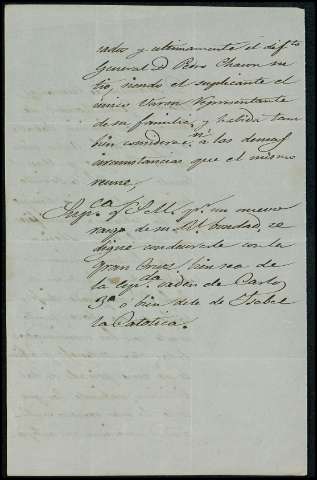 cada y ultimamente el dif.to
General D. Pedro Chacon su
tio, siendo el suplicante el
unico Varon representante
de su familia, y habida tam
bien considerac.n a las demas
circunstancias que el mismo
reune,
Sup.ca á V. M. q.e por un nuevo
rasgo de su Rl. bondad, se
digne condecorarle con la
Gran Cruz, bien sea de
la Esp.da orden de Carlos
3.o ó bien de la de Isabel
la Catolica.